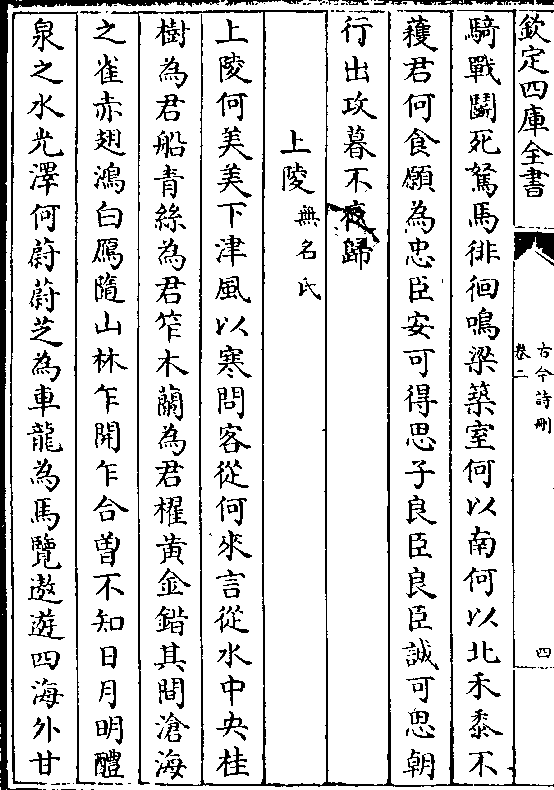 欽定四庫全書
古今詩刪
卷二
四
騎戰鬬死駑馬徘徊鳴梁築室何以南何以北禾黍不
穫君何食願為忠臣安可得思子良臣良臣誠可思朝
行出攻暮不夜歸
上陵無名氏
上陵何美美下津風以寒問客從何來言從水中央桂
樹為君船青絲為君笮木蘭為君櫂黄金錯其間滄海
之雀赤翅鴻白鴈隨山林乍開乍合曽不知日月明醴
泉之水光澤何蔚蔚芝為車龍為馬覽遨遊四海外甘